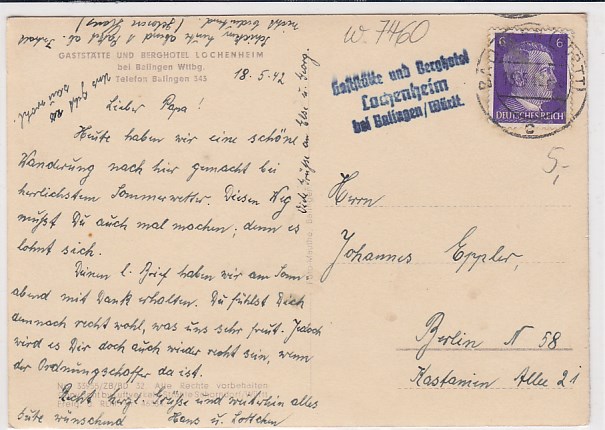 GASTSTÄTTE UND BERGHOTEL LOCHENHEIM
bei Balingen Wttbg.
Telefon Balingen 545
18.5.42
Lieber Papa!
Heute haben wir eine schöne
Wanderung nach hier gemacht bei
herlichstem Sommerwetter. Diesen Weg
mußt Du auch mal machen, denn es
lohnt sich.
Deinen l. Brief haben wir am Sonn-
abend mit Dank erhalten. Du fühlst Dich
demnach recht wohl, was uns sehr freut. Jedoch
wird es Dir doch auch wieder recht sein, wenn
der Ordnungschaffer da ist.
Recht herzl. Grüße und weiterhin alles
Gute wünschend Hans u. Lottchen
Viele Grüße an Else u. Georg.
Alle Rechte vorbehalten
W. 7460
Gaststätte und Berghotel
Lochenheim
bei Balingen/Württ.
6 6
DEUTSCHES REICH
c
5,-
Herrn
Johannes Eppler,
Berlin N 58
Kastanien Allee 21